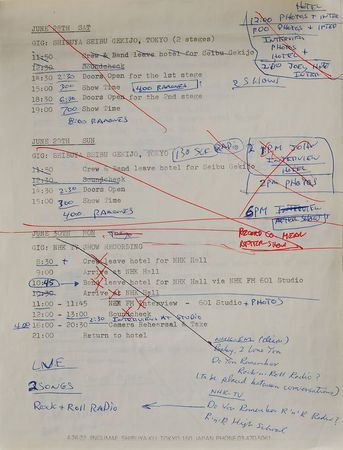 HOTEL
JUNE 28TH SAT
12:00 PHOTOS + INTER
1:00 PHOTOS + INTER
GIG: SHIBUYA SEIBU GEKIJO, TOKYO (2 stages)
INTERVIEW
PHOTOS
HOTEL
11:50 Crew & Band leave hotel for Seibu Gekijo
2:00 JOEY
INTER
17:30 Soundcheck
2 SHOWS
18:30 2:30 Doors Open for the 1st stage
15:00 3:00 Show Time 4:00 RAMONES!
18:30 6:30 Doors Open for the 2nd stage
19:00 7:00 Show Time
8:00 RAMONES
JUNE 29TH SUN
GIG: SHIBUYA SEIBU GEKIJO, TOKYO 1:30 RADIO
PM JOEY
INTERVIEW
HOTEL
11:50 Crew & Band leave hotel for Seibu
Soundcheck
2PM PHOTOS
2:30 Doors Open
15:00 3:00 Show Time
4:00 RAMONES
6PM INTERVIEW
AFTER SHOW!
RECORD CO. MEAL
AFTER SHOW
JUNE 30TH MON
GIG: NHK TV SHOW RECORDING
8:30 Crew leave hotel for NHK Hall
9:00 Arrive at NHK Hall
10:45 Band leave hotel for NHK Hall via NHK FM 601 Studio
10:30 Arrive at NHK Hall
11:00 - 11:45 NHK FM Interview - 601 Studio + PHOTO
12:00 - 13:00 Soundcheck
2:30 INTERVIEW AT STUDIO
4:00 16:00 - 20:30 Camera Rehearsal & Take
21:00 Return to hotel
Baby, I Love You
Do You Remember
Rock-n-Roll Radio?
(To be placed between conversations)
LIVE
2 SONGS
NHK-TV
Rock + Roll RADIO
Do You Remember R'n'R Radio?
R'n'R High School
JINGUMAE, SHIBUYA-KU, TOKYO 150, JAPAN PHONE